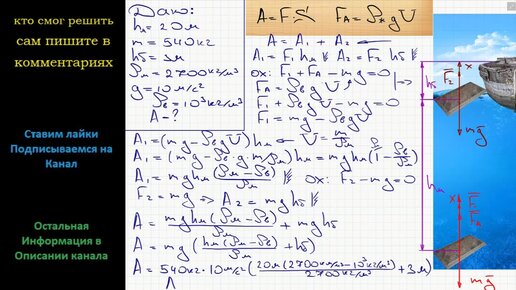 кто смог решить
сам пишите в
комментариях
Ставим лайки
Подписываемся на
Канал
Остальная
Информация в
Описании канала
Дано:
hм=20м
m=540кг
hб=3м
ρм=2700кг/м³
g=10м/с²
ρв=10³кг/м³
A-?
A=F·S
Fₐ=ρж g V
A = A₁ + A₂
A₁=F₁hм A₂=F₂hб
ox: F₁+Fₐ-mg=0
Fₐ=ρв g V
F₁+ρв g V-mg=0
F₁=mg-ρв g V
A₁=(mg-ρв g V)hм V=m/ρм
A₁=(mg-ρв·g·m/ρм)hм=mghм(1-ρв/ρм)
A₁=mghм(ρм-ρв)/ρм ox: F₂-mg=0
F₂=mg → A₂=mghб
A=mghм(ρм-ρв)/ρм+mghб
A=mg(hм(ρм-ρв)/ρм+hб)
A=540кг·10м/с²(20м(2700кг/м³-10³кг/м³)/2700кг/м³+3м)
A
x
F₂
hб
mg
hм
x
F₁
Fₐ
mg